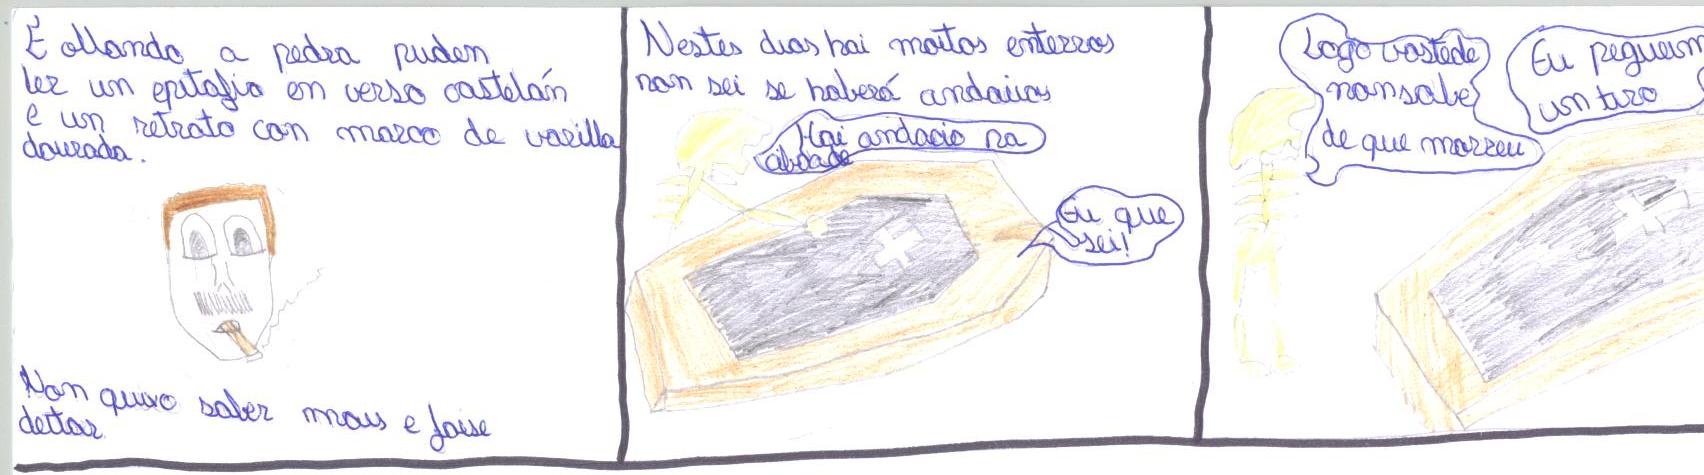 E ollando a pedra puden
ler un epitafio en verso castelán
e un retrato con marco de varilla
dourada.
Non quixo saber mais e foise
deitar
Nestes dias hai moitos enterros
non sei se haberá andacios
Hai andacio na
cibdade
Eu que
sei!
Logo vostede
non sabe
de que morreu
Eu pegueim
un tiro